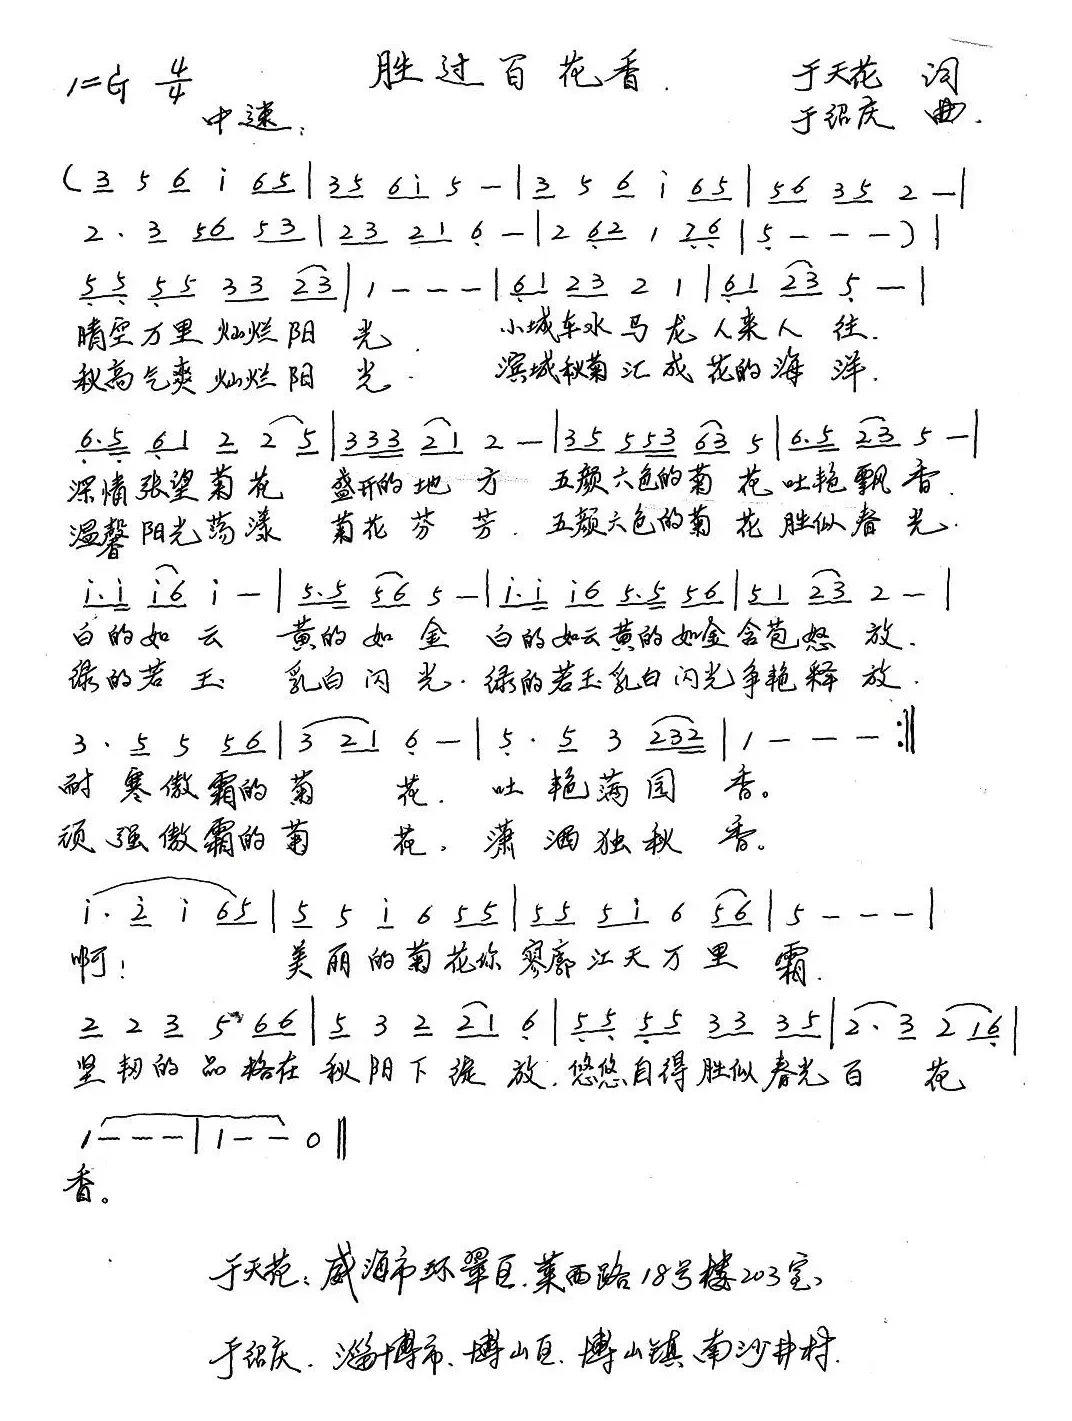 胜过百花香.
1=G 4/4
于天花 词
中速:
于绍庆 曲.
(3 5 6 i 65|35 6i 5 -|3 5 6 i 65|56 35 2 -|
2· 3 56 53|23 21 6 -|2 62 1 26|5 - - -)|
55 55 33 23|1 - - -|61 23 2 1|61 23 5 -|
晴空万里灿烂阳 光. 小城车水马龙人来人 往.
秋高气爽灿烂阳 光. 滨城秋菊汇成花的海 洋.
6·5 61 2 2 5|333 21 2 -|35 553 63 5|6·5 23 5 -|
深情张望菊花 盛开的地 方 五颜六色的菊 花吐艳飘香.
温馨阳光荡漾 菊花芬 芳. 五颜六色的菊 花胜似春光.
i·i i6 i -|5·5 56 5 -|i·i i6 5·5 56|51 23 2 -|
白的如云 黄的如金 白的如云黄的如金含苞怒 放.
绿的若玉 乳白闪光. 绿的若玉乳白闪光争艳释 放.
3· 5 5 56|3 21 6 -|5· 5 3 232|1 - - -:||
耐寒傲霜的菊 花. 吐艳满园 香。
顽强傲霜的菊 花. 潇洒独秋 香。
i· 2 i 65|5 5 i 6 55|55 5i 6 56|5 - - -|
啊! 美丽的菊花你寥廓江天万里 霜.
2 2 3 5 66|5 3 2 21 6|55 55 33 35|2· 3 2 16|
坚韧的品格在秋阳下绽 放. 悠悠自得胜似春光百 花
1 - - -|1 - - 0||
香。
于天花: 威海市环翠区.莱西路18号楼203室。
于绍庆. 淄博市、博山区.博山镇.南沙井村.